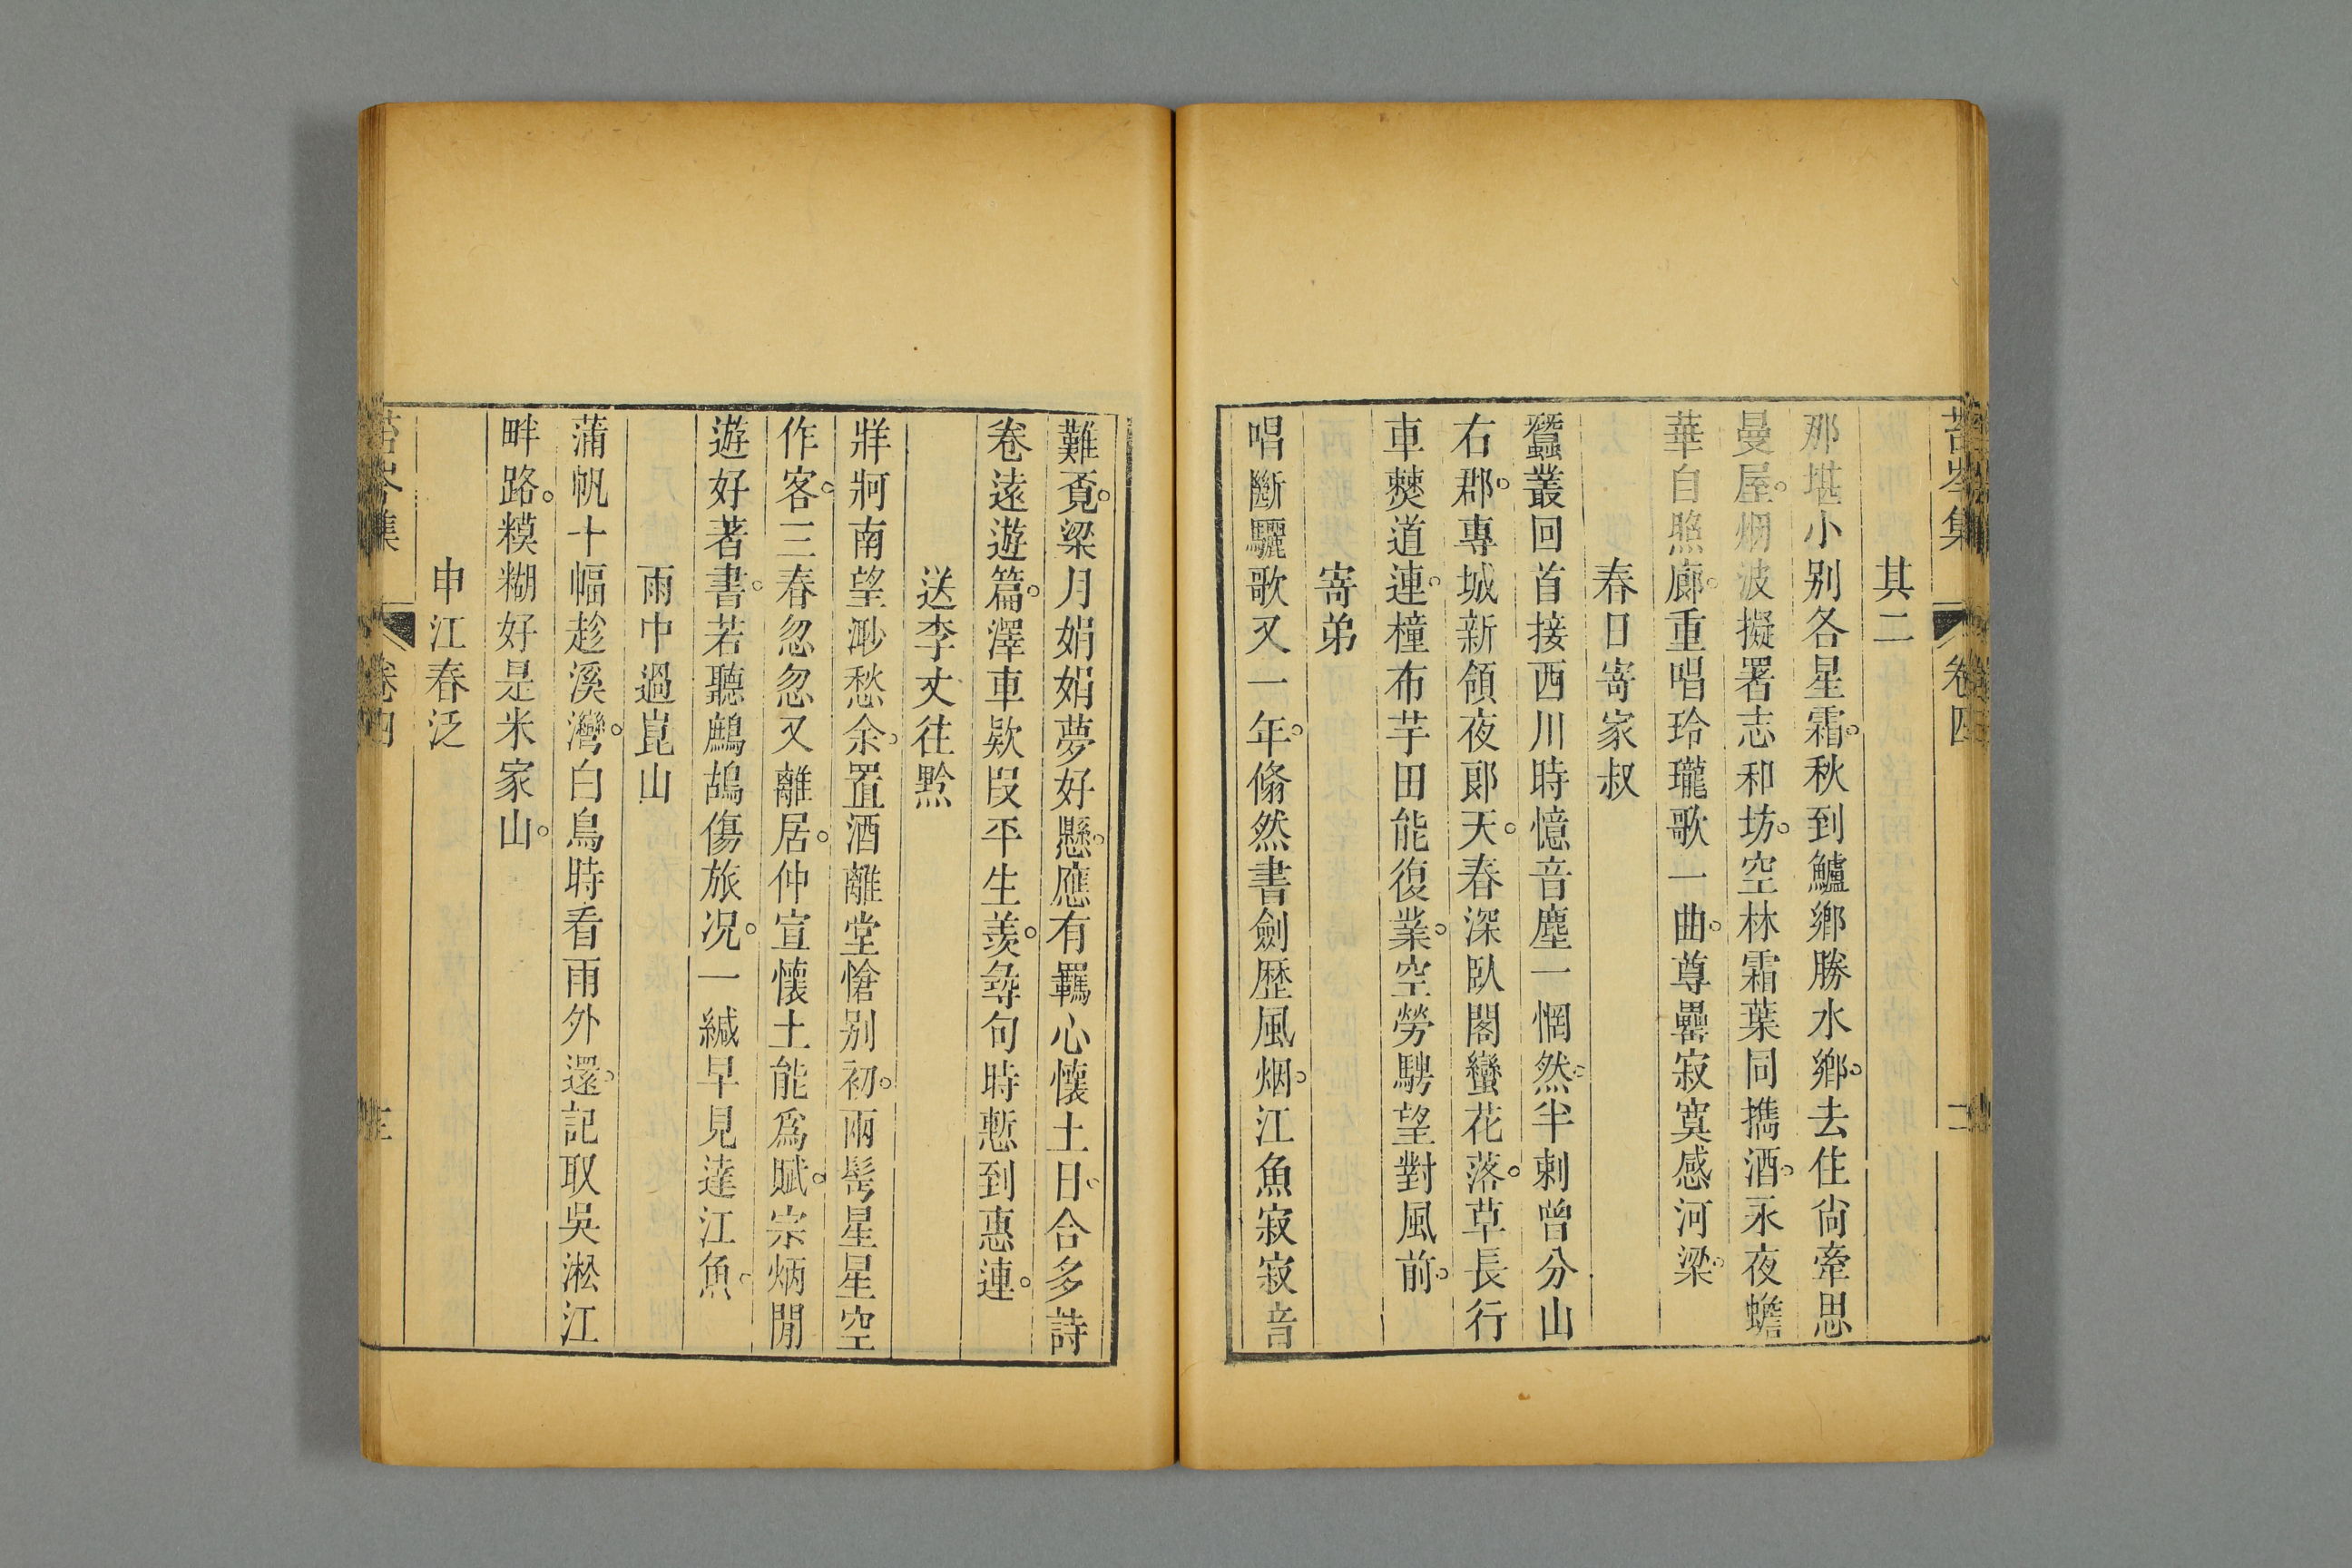 苔岑集 卷四 二
其二
那堪小别各星霜。秋到鱸鄉勝水鄉。去住尙牽思
曼屋。烟波擬署志和坊。空林霜葉同擕酒。永夜蟾
華自照廊。重唱玲瓏歌一曲。尊罍寂寞感河梁。
春日寄家叔
蠶叢回首接西川時憶音塵一惘然。半刺曾分山
右郡。專城新領夜郞天。春深臥閣蠻花落。草長行
車僰道連。橦布芋田能復業。空勞騁望對風前。
寄弟
唱斷驪歌又一年。翛然書劍歷風烟。江魚寂寂音
難覔。梁月娟娟夢好懸。應有羈心懷土日。合多詩
卷遠遊篇。澤車欵段平生羨。尋句時慙到惠連。
送李丈往黔
牂牁南望渺愁余。置酒離堂愴别初。兩髩星星空
作客。三春忽忽又離居。仲宣懷土能爲賦。宗炳閒
遊好著書。若聽鷓鴣傷旅况。一緘早見達江魚。
雨中過崑山
蒲帆十幅趁溪灣。白鳥時看雨外還。記取吳淞江
畔路。糢糊好是米家山。
申江春泛
苔岑集 卷四